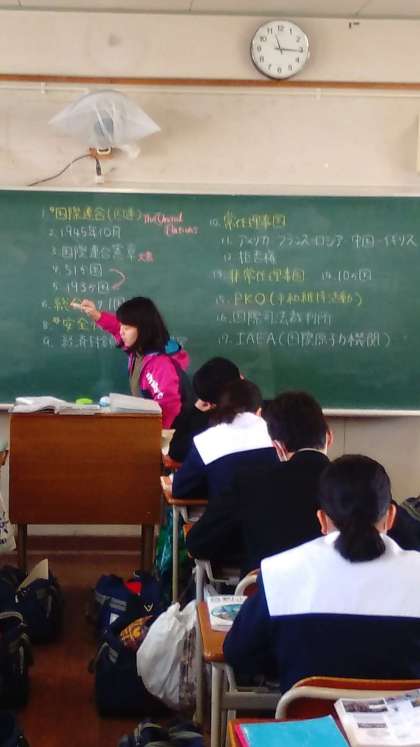 1. *国際連合(国連) The United Nations
2. 1945年10月
3. 国際連合憲章
4. 51か国
5. 193か国
6. 総
8. *安全
9. 経済
10. 常任理事国
11. アメリカ フランス ロシア 中国 イギリス
12. 拒否権
13. 非常任理事国 14. 10か国
15. PKO(平和維持活動)
16. 国際司法裁判所
17. IAEA(国際原子力機関)
12
1
2
3
4
5
6
7
8
9
10
11